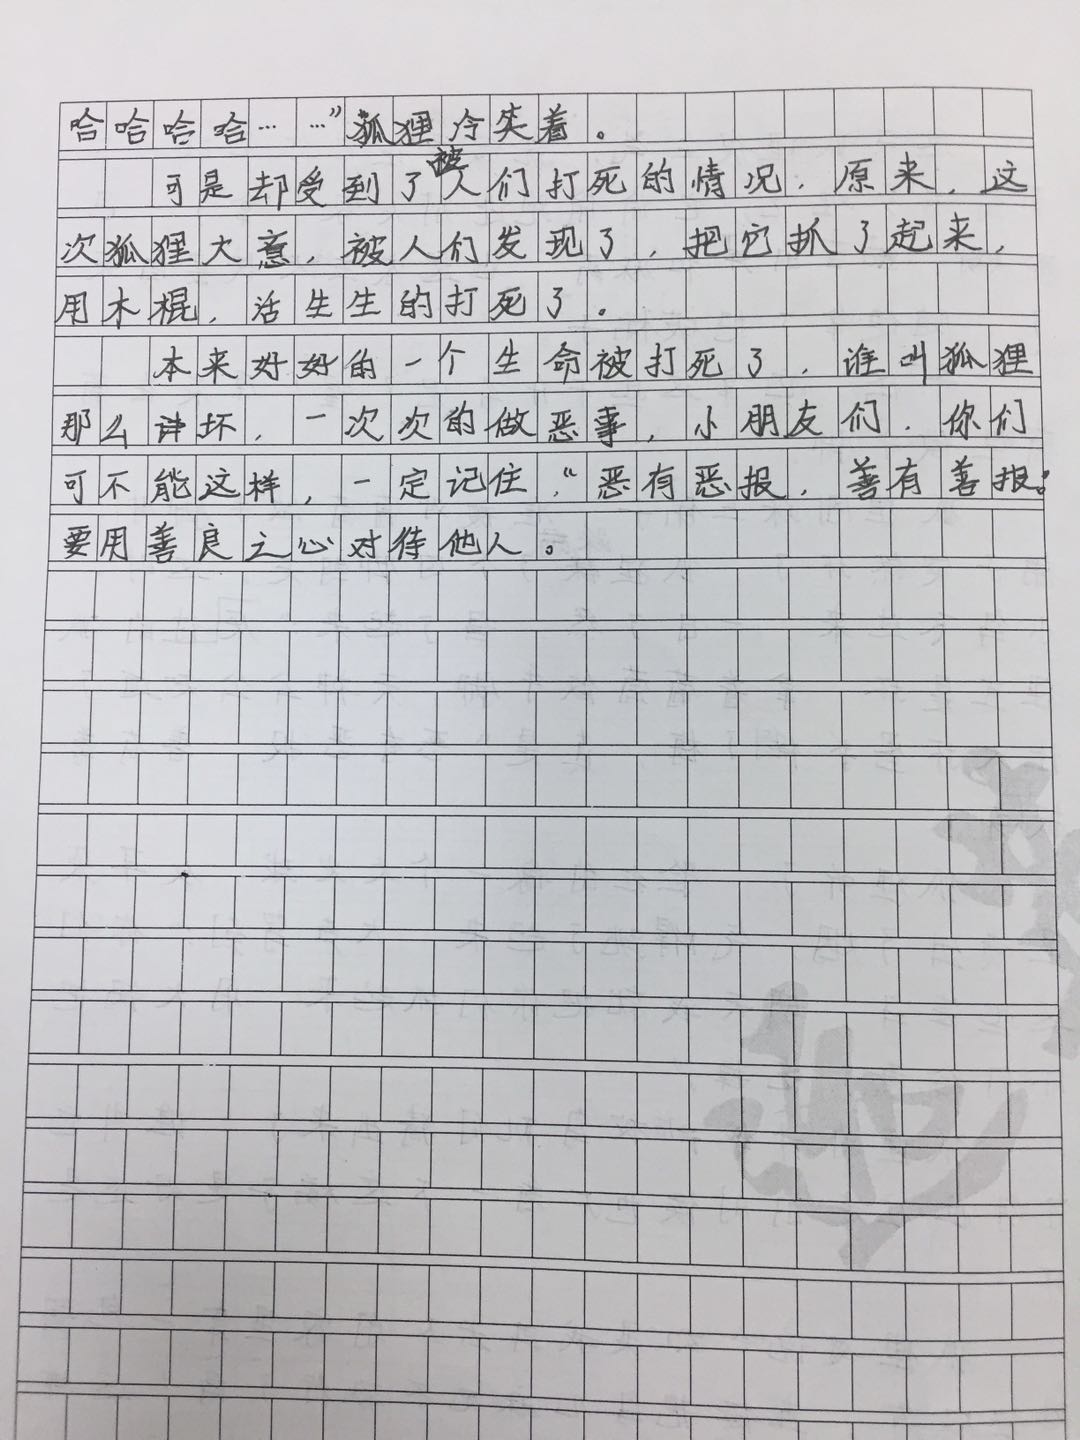 哈哈哈哈……”狐狸冷笑着。
可是却受到了被人们打死的情况，原来，这
次狐狸大意，被人们发现了，把它抓了起来，
用木棍，活生生的打死了。
本来好好的一个生命被打死了，谁叫狐狸
那么坏，一次次的做恶事，小朋友们，你们
可不能这样，一定记住，“恶有恶报，善有善报”
要用善良之心对待他人。